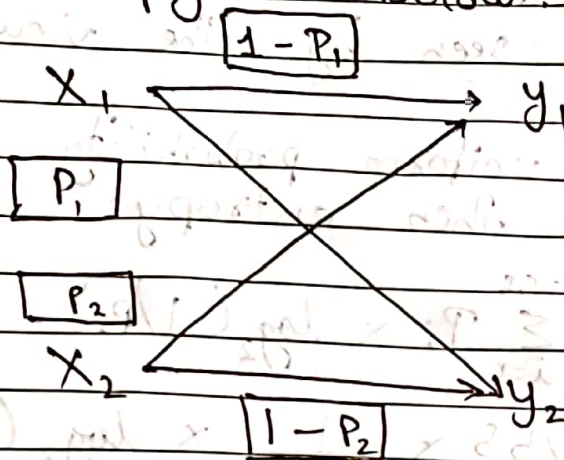 1 - P₁
X₁ y₁
P₁
P₂
X₂ y₂
1 - P₂